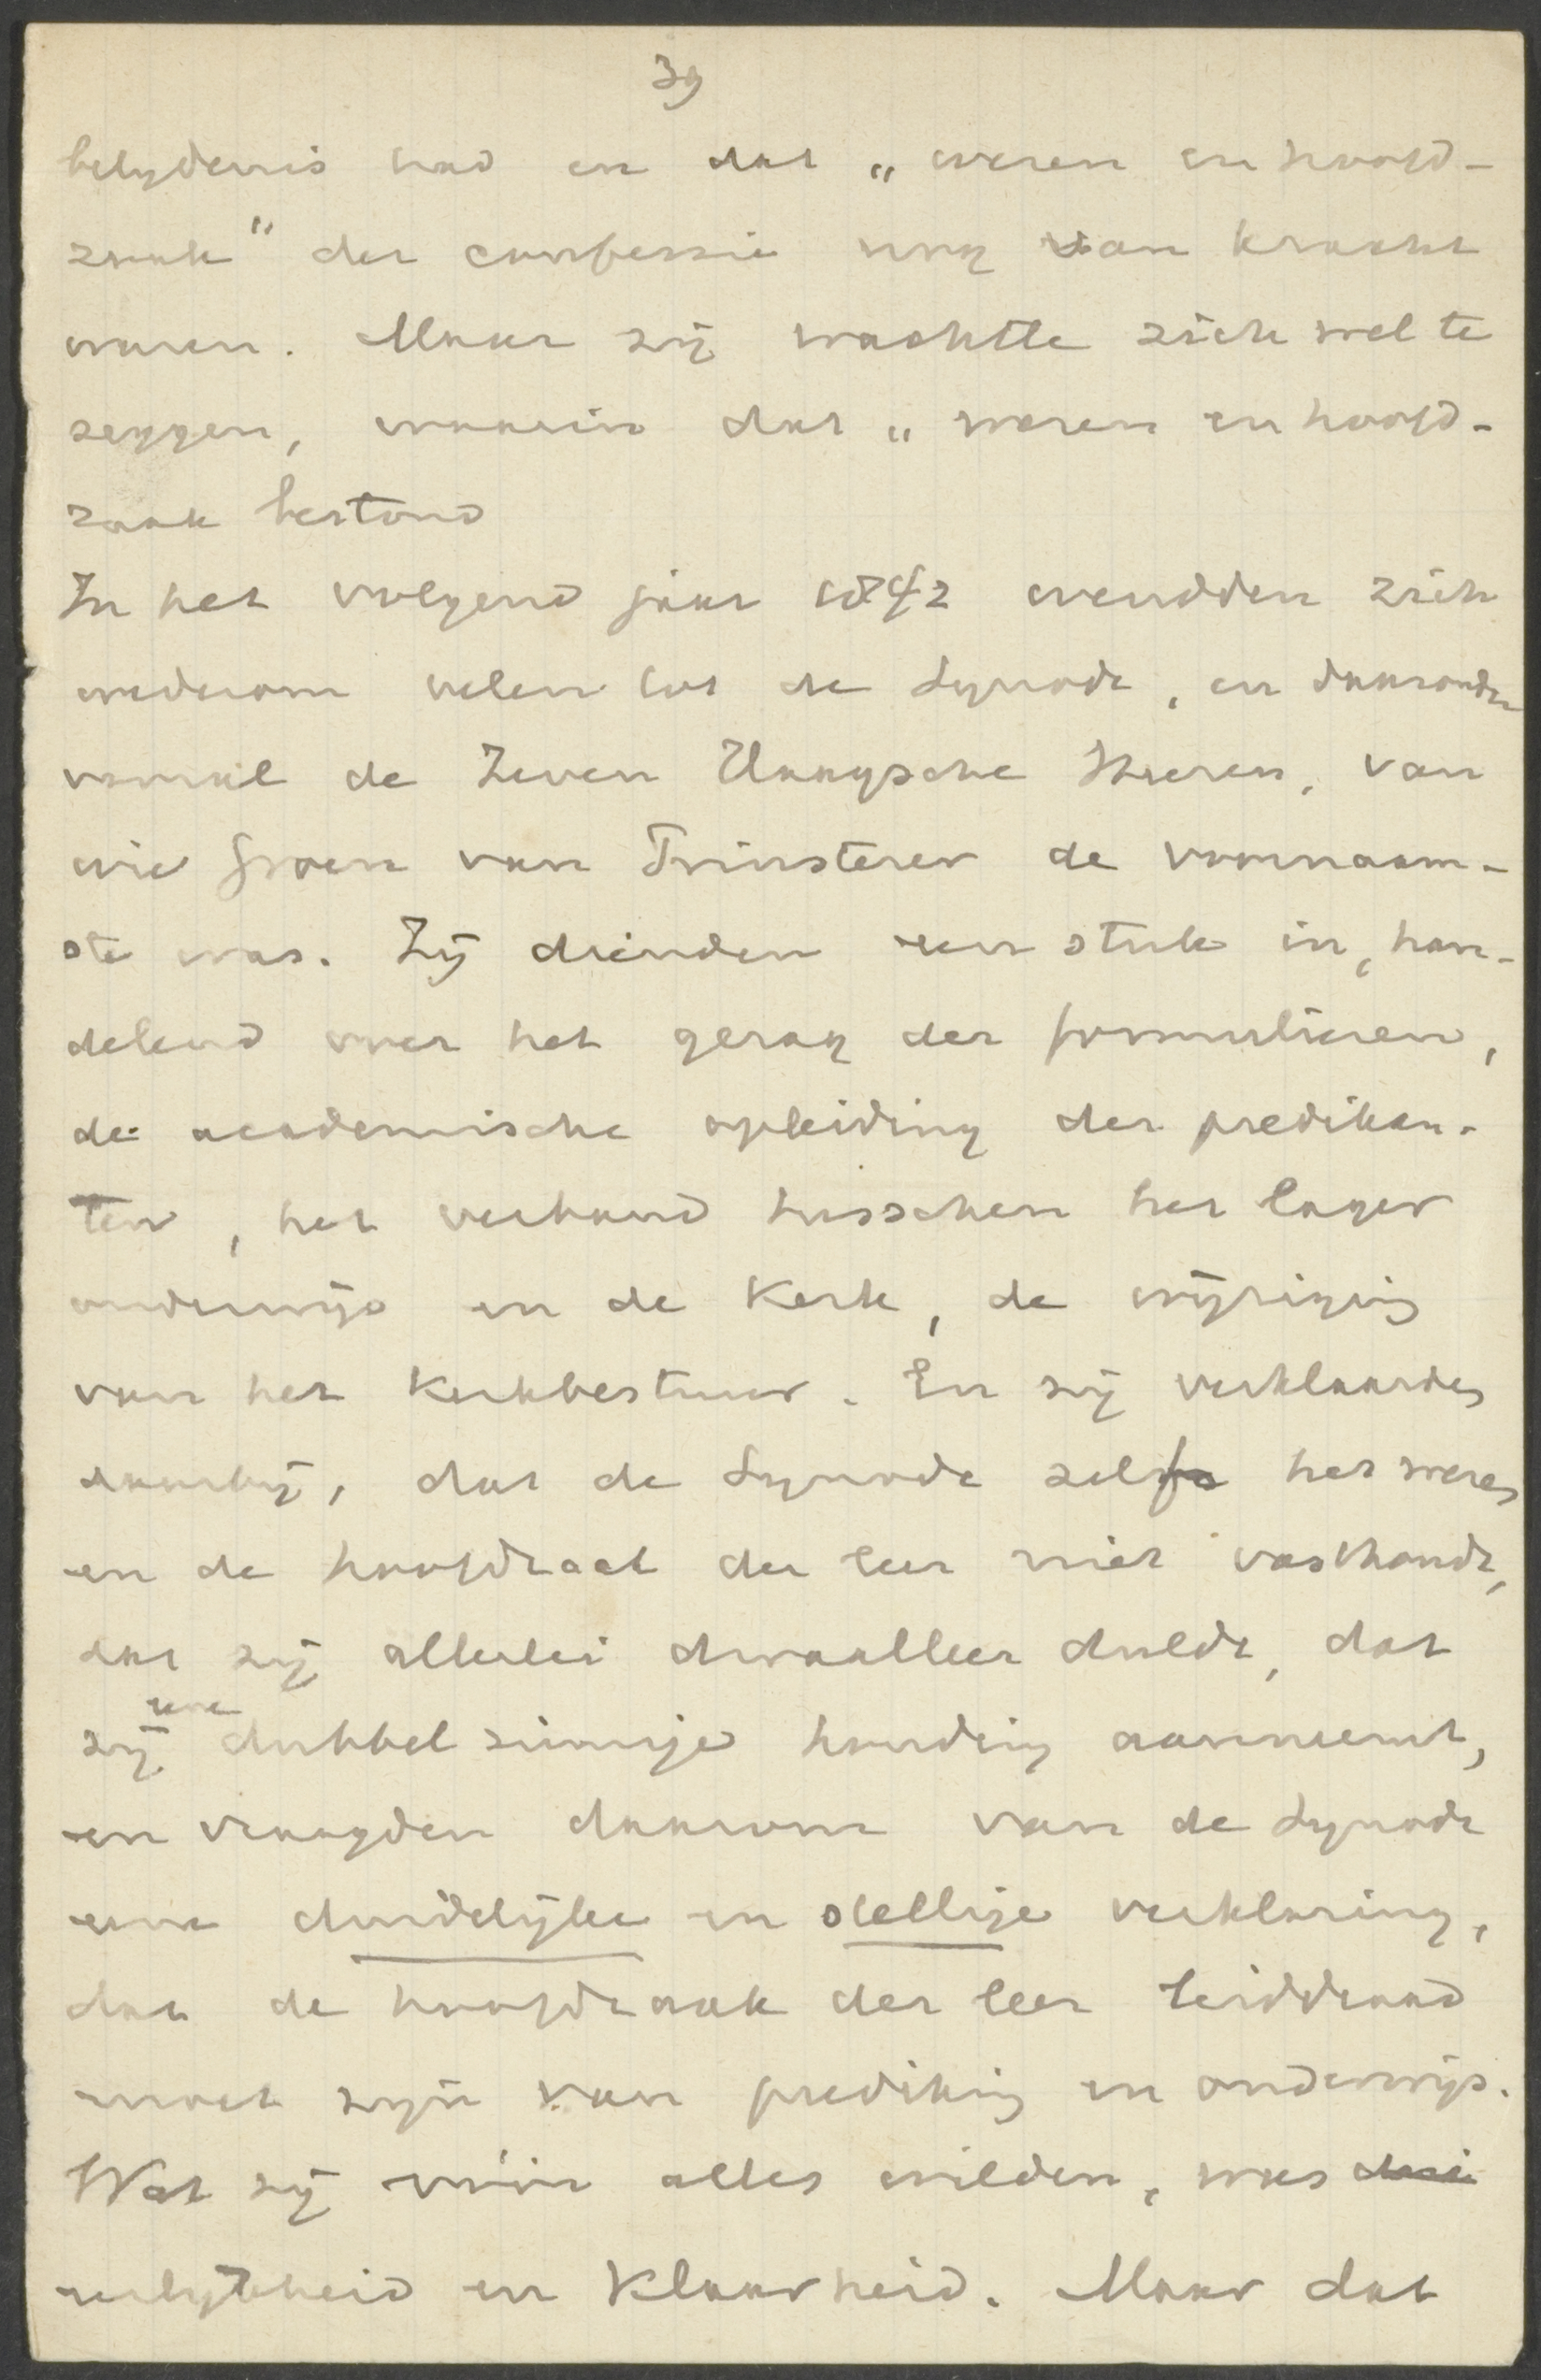 39
belydenis had en dat „wezen en hoofd-
zaak" der confessie nog van kracht
waren. Maar zij wachtte zich wel te
zeggen, waarin dat „wezen en hoofd-
zaak bestond
In het volgend jaar 1842 wendden zich
wederom velen tot de Synode, en daaronder
vooral de Zeven Haagsche Heeren, van
wie Groen van Prinsterer de voornaam-
ste was. Zij dienden een stuk in, han-
delend over het gezag der formulieren,
de academische opleiding der predikan-
ten, het verband tusschen het lager
onderwijs en de Kerk, de wijziging
van het Kerkbestuur. En zij verklaarden
daarbij, dat de Synode zelfs het wezen
en de hoofdzaak der leer niet vasthoudt,
dat zij allerlei dwaalleer duldt, dat
zij eene dubbelzinnige houding aanneemt,
en vraagden daarom van de Synode
eene duidelijke en stellige verklaring,
dat de hoofdzaak der leer leiddraad
moet zijn van prediking en onderwijs.
Wat zij vóór alles wilden, was
eerlijkheid en Klaarheid. Maar dat